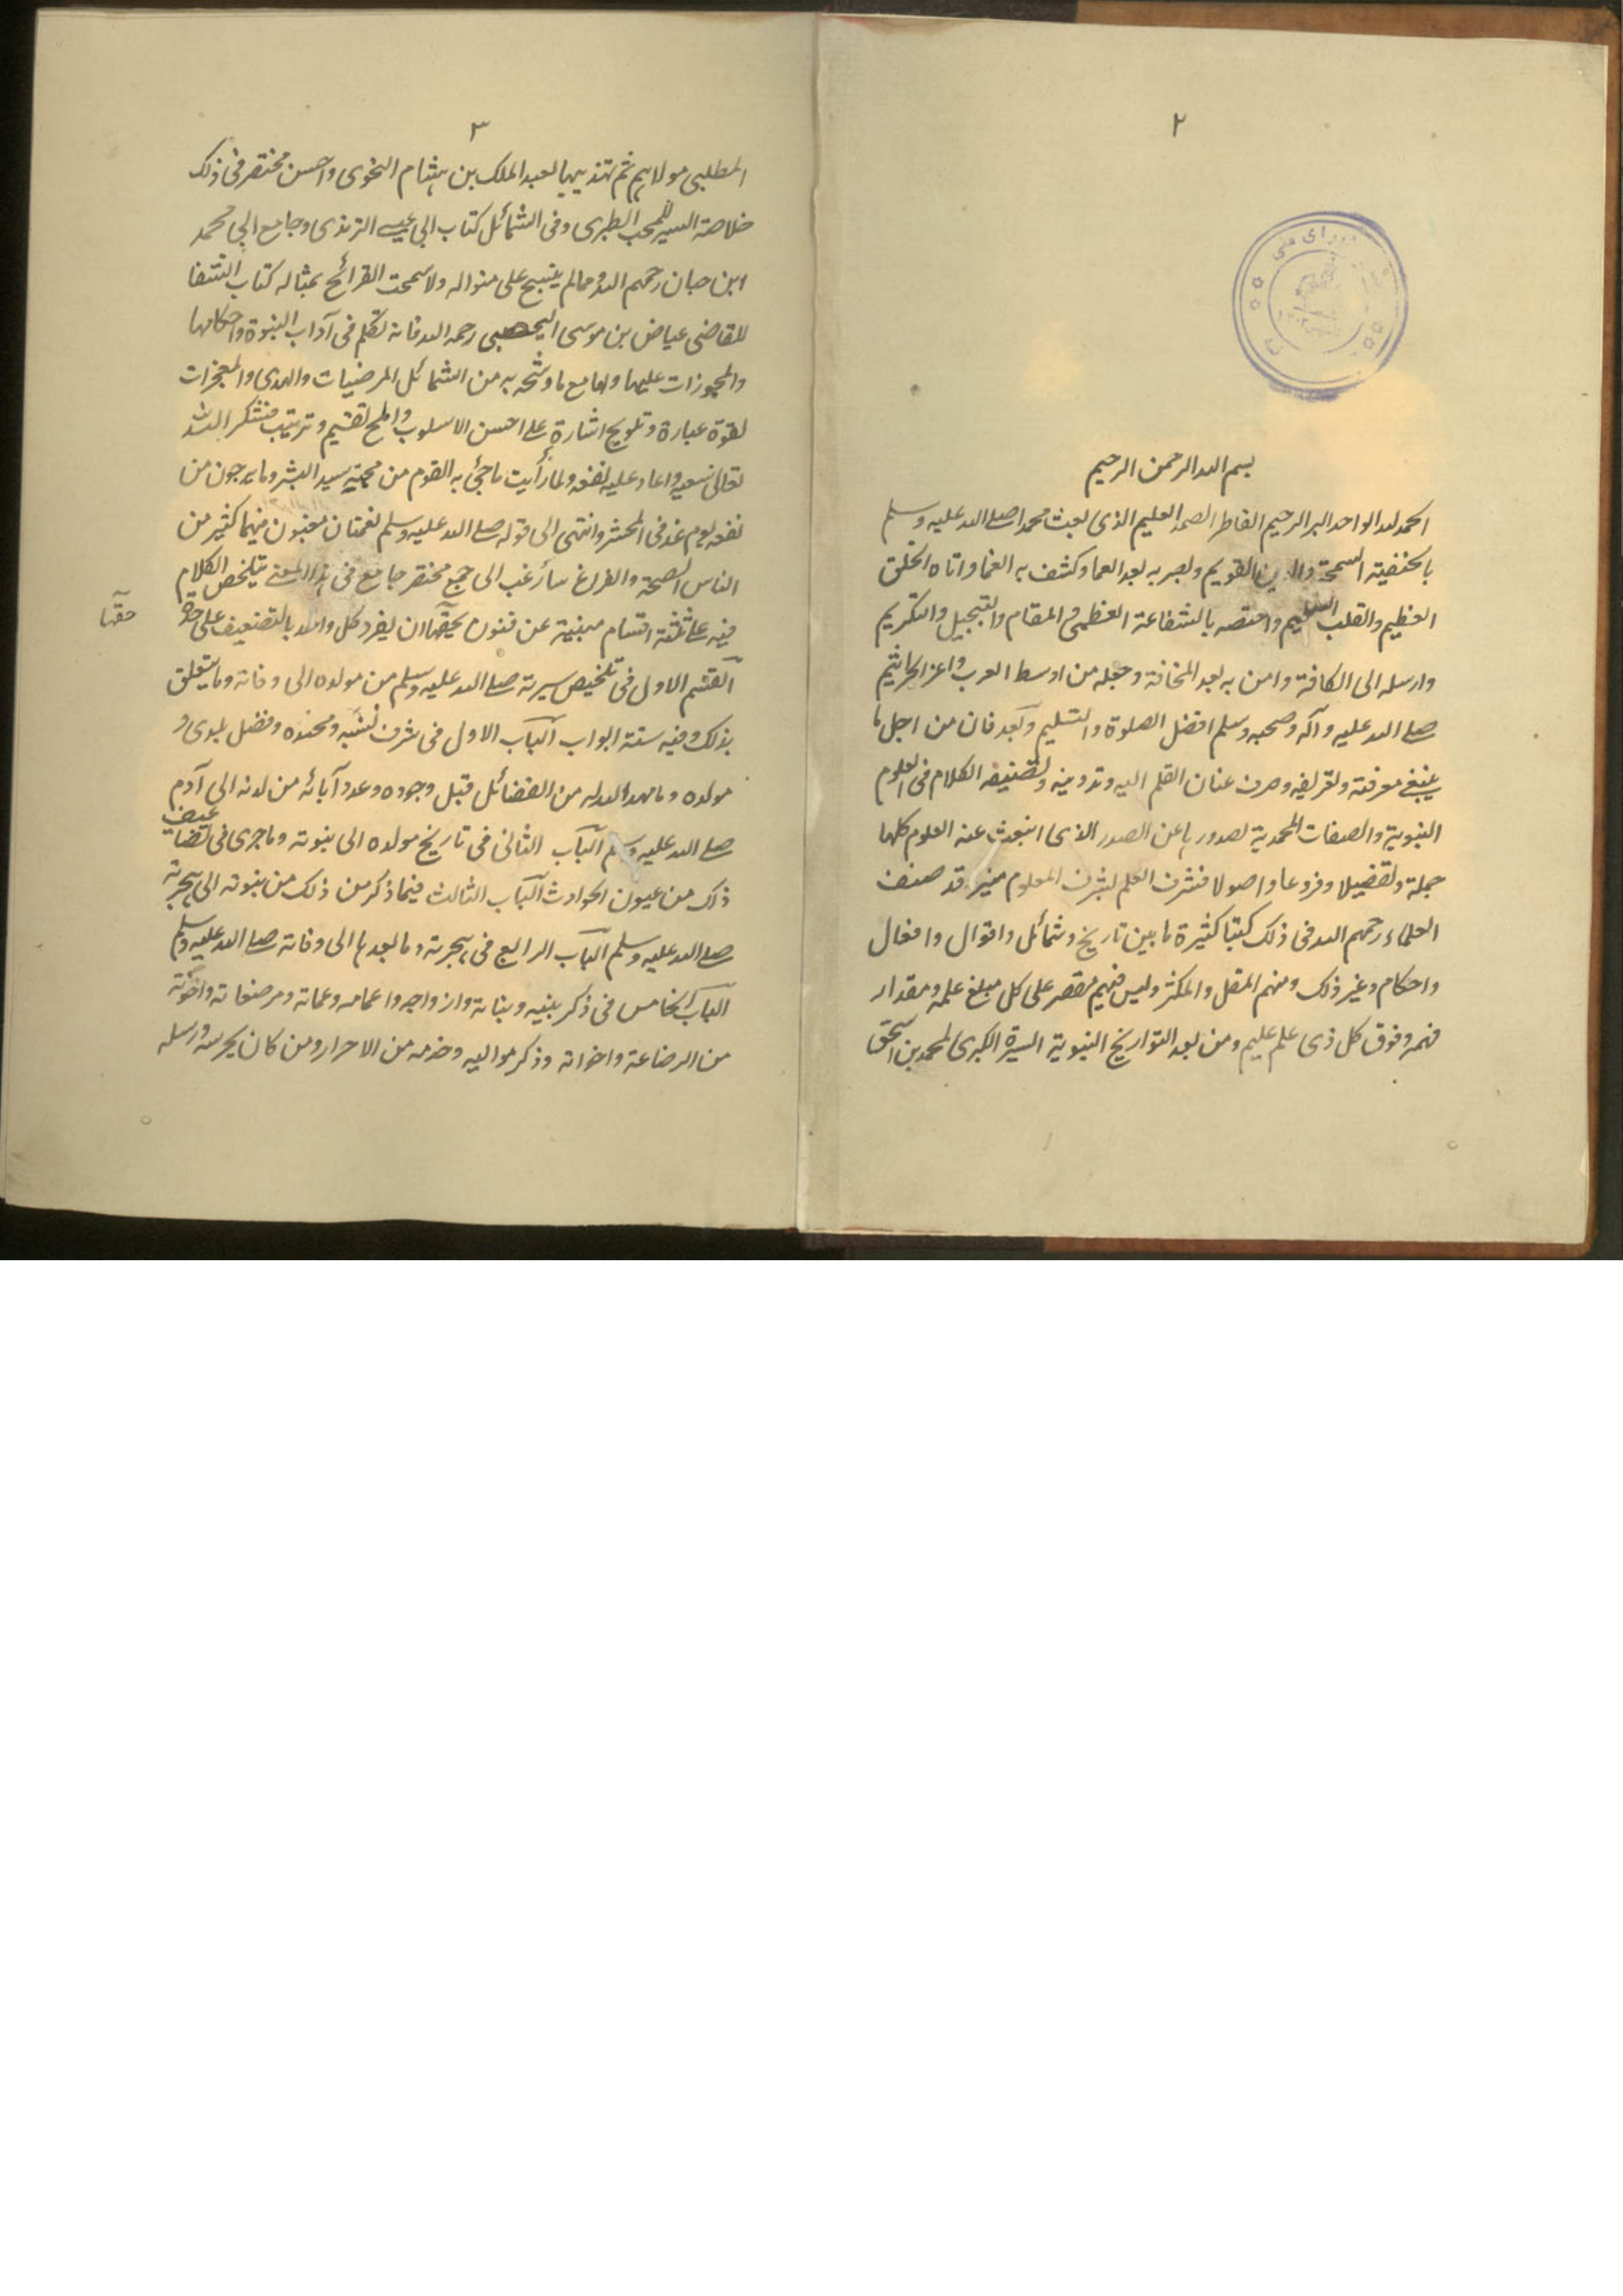 ٢
بسم الله الرحمن الرحيم
الحمد لله الواحد البر الرحيم الفاطر الصمد العليم الذى بعث محمدا صلے الله عليه وسلم
بالحنفية السمحة والدين القويم وبصر به بعد العما وكشف به الغما واتاه الخلق
العظيم والقلب السليم واختصه بالشفاعة العظمى والمقام والتبجيل والتكريم
وارسله الى الكافة وامن به بعد المخافة وجعله من اوسط العرب واعز الجراثيم
صلے الله عليه وآله وصحبه وسلم افضل الصلوة والتسليم وبعد فان من اجل ما
ينبغے معرفته وتعريفه وصرف عنان القلم اليه وتدوينه وتصنيفه الكلام فى العلوم
النبوية والصفات المحمدية لصدورها عن الصدر الذى انبعث عنه العلوم كلها
جملة وتفضيلا وفروعا واصولا فشرف العلم بشرف المعلوم فيه قد صنف
العلماء رحمهم الله فى ذلك كتبا كثيرة ما بين تاريخ وشمائل واقوال وافعال
واحكام وغير ذلك ومنهم المقل والمكثر وليس فيهم مقصر على كل مبلغ علمه ومقدار
فهمه وفوق كل ذى علم عليم ومن بعد التواريخ النبوية السيرة الكبرى لمحمد بن اسحق
٣
المطلبى مولاهم ثم تهذيبها لعبد الملك بن هشام النحوى واحسن مختصر فى ذلك
خلاصة السير للمحب الطبرى وفى الشمائل كتاب ابى عيسے الترمذى وجامع ابى محمد
ابن حبان رحمهم الله ومما لم ينسج على منواله ولا سمحت القرائح بمثاله كتاب الشفا
للقاضى عياض بن موسى اليحصبى رحمه الله فانه تكلم فى آداب النبوة واحكامها
والمجوزات عليها ولها مع ما وشحه به من الشمائل المرضيات والهدى والمعجزات
بقوة عبارة وتلويح اشارة على احسن الاسلوب واملح تقسيم وترتيب فشكر الله
تعالى سعيه واعاد عليه نفعه ولما رأيت ما جئ به القوم من محبة سيد البشر وما يرجون من
نفعه يوم غد فى المحشر وانتهى الى قوله صلے الله عليه وسلم نعمتان مغبون فيهما كثير من
الناس الصحة والفراغ سأرغب الى جمع مختصر جامع فى هذا المعنے يتلخص الكلام
فيه على ثلثة اقسام مبنية عن فنون يحق لها ان يفرد كل واحد بالتصنيف على حدة
حقها
القسم الاول فى تلخيص سيرته صلے الله عليه وسلم من مولده الى وفاته وما يتعلق
بذلك وفيه ستة ابواب الباب الاول فى شرف نسبه ومحتده وفضل بلدى و
مولده وما مهد الله له من الفضائل قبل وجوده وعدد آبائه من لدنه الى آدم
صلے الله عليه وسلم الباب الثانى فى تاريخ مولده الى نبوته وما جرى فى تضاعيف
ذلك من عيون الحوادث الباب الثالث فيما ذكر من ذلك من نبوته الى هجرته
صلے الله عليه وسلم الباب الرابع فى هجرته وما بعدها الى وفاته صلے الله عليه وسلم
الباب الخامس فى ذكر بنيه وبناته وازواجه واعمامه وعماته ومرضعاته واخوته
من الرضاعة واخواته وذكر مواليه وخدمه من الاحرار ومن كان يحرسه ورسله